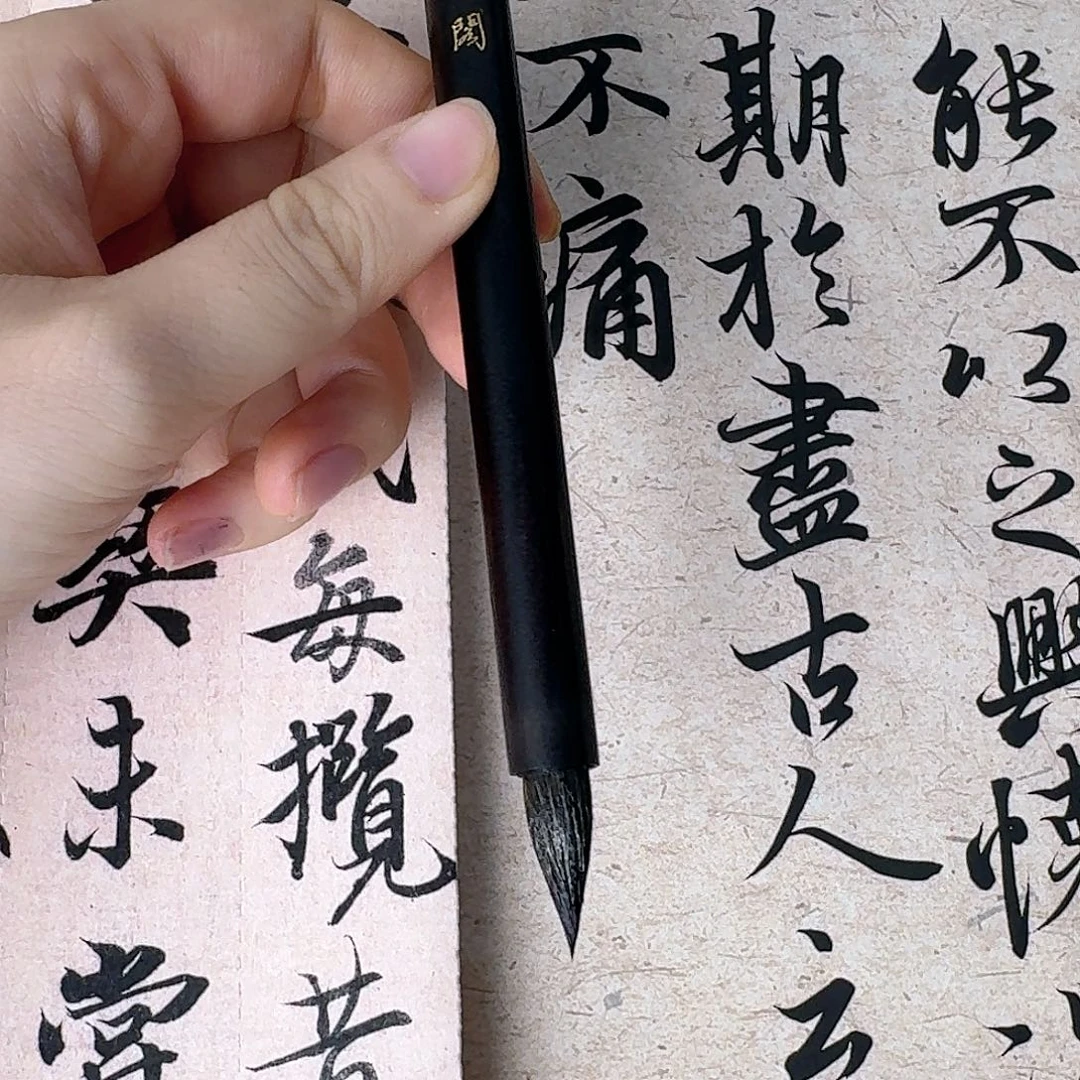 能不以之興懷
期於盡古人云
不痛
每攬昔
契未嘗
閣